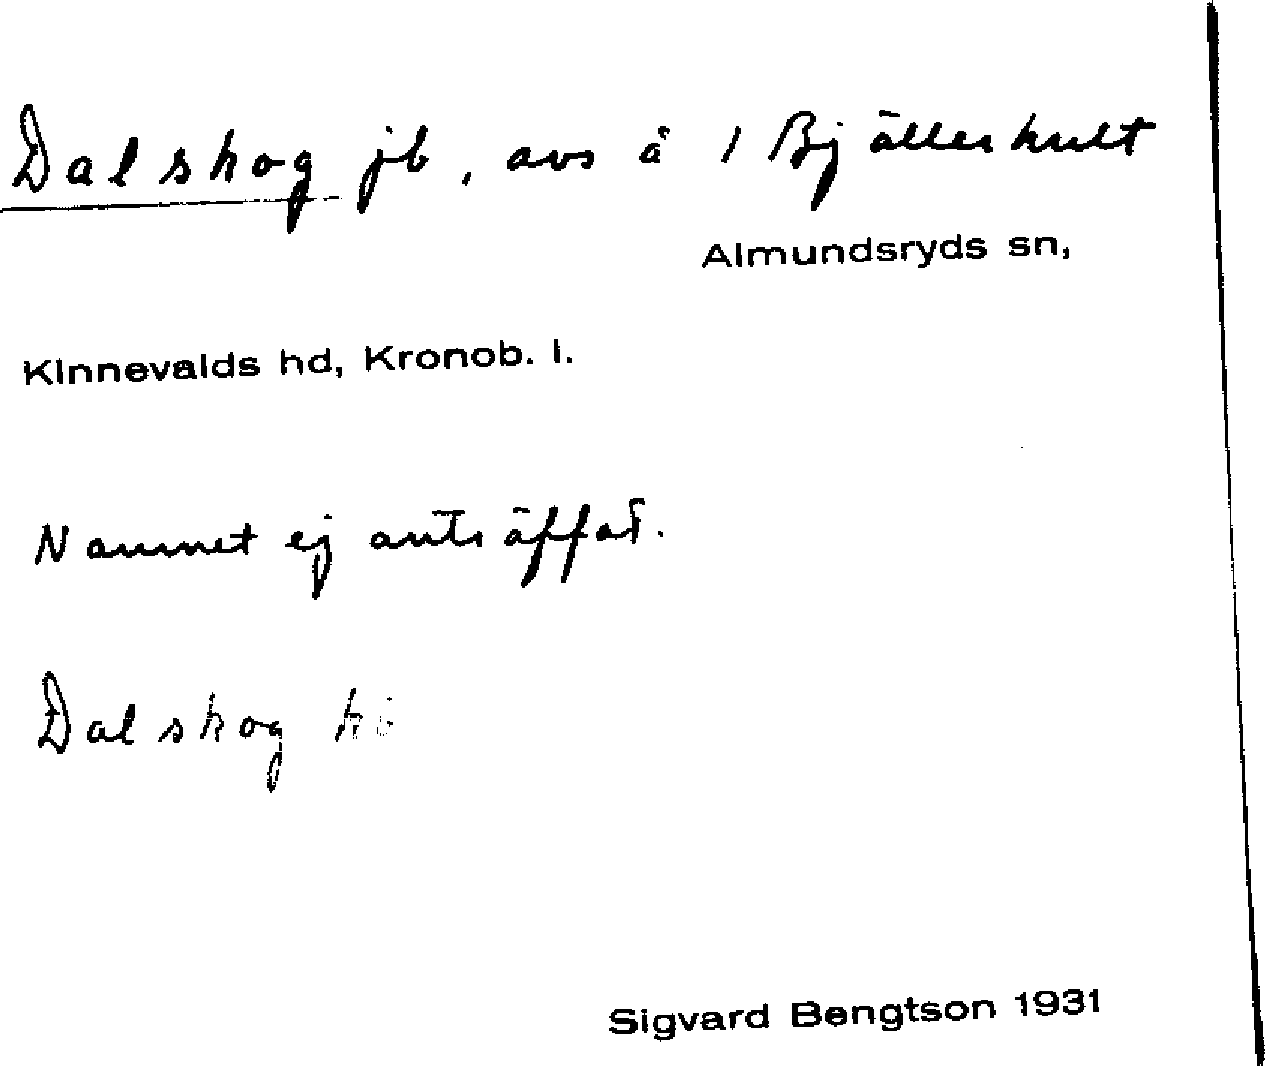 Dalskog jb, avs å 1 Bjällerhult
Almundsryds sn,
Kinnevalds hd, Kronob. l.
Namnet ej anträffat.
Dalskog
Sigvard Bengtson 1931